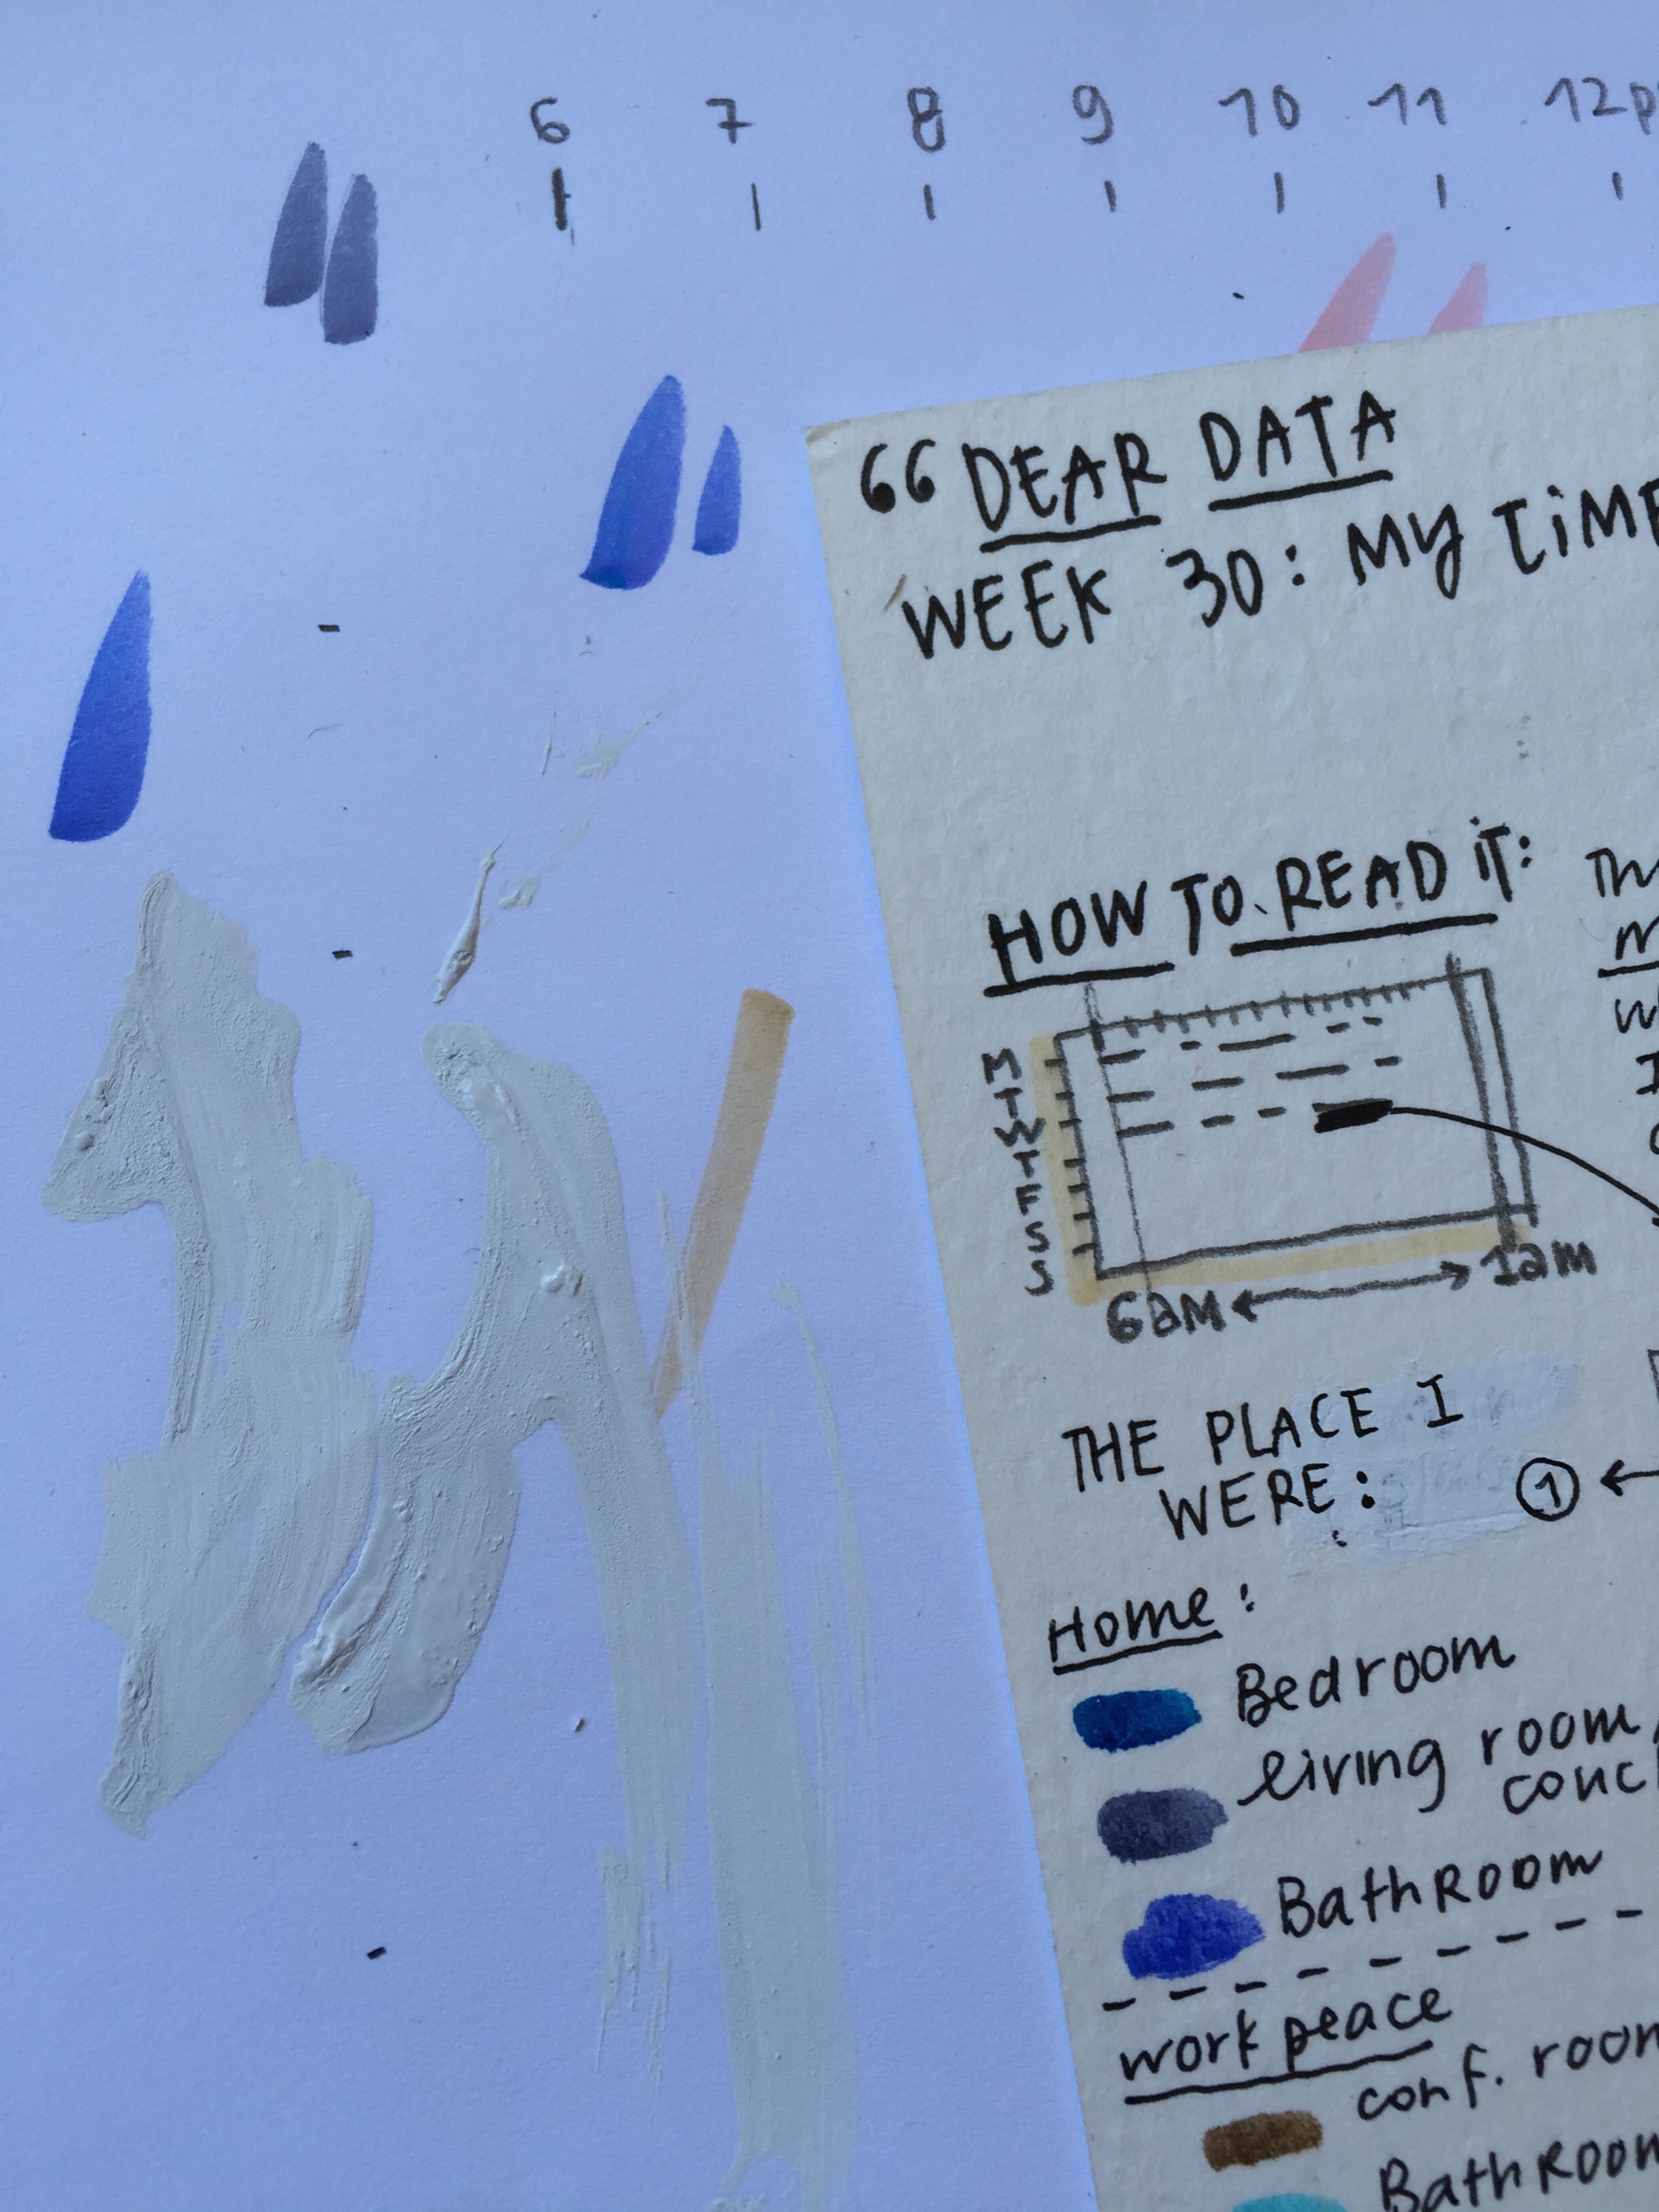 6 7 8 9 10 11 12p
66 DEAR DATA
WEEK 30: MY TIME
HOW TO READ IT:
M
T
W
T
F
S
S
6am 12m
THE PLACE I
WERE: 1
Home:
Bedroom
living room
Bathroom
work peace
conf. room
Bathroom